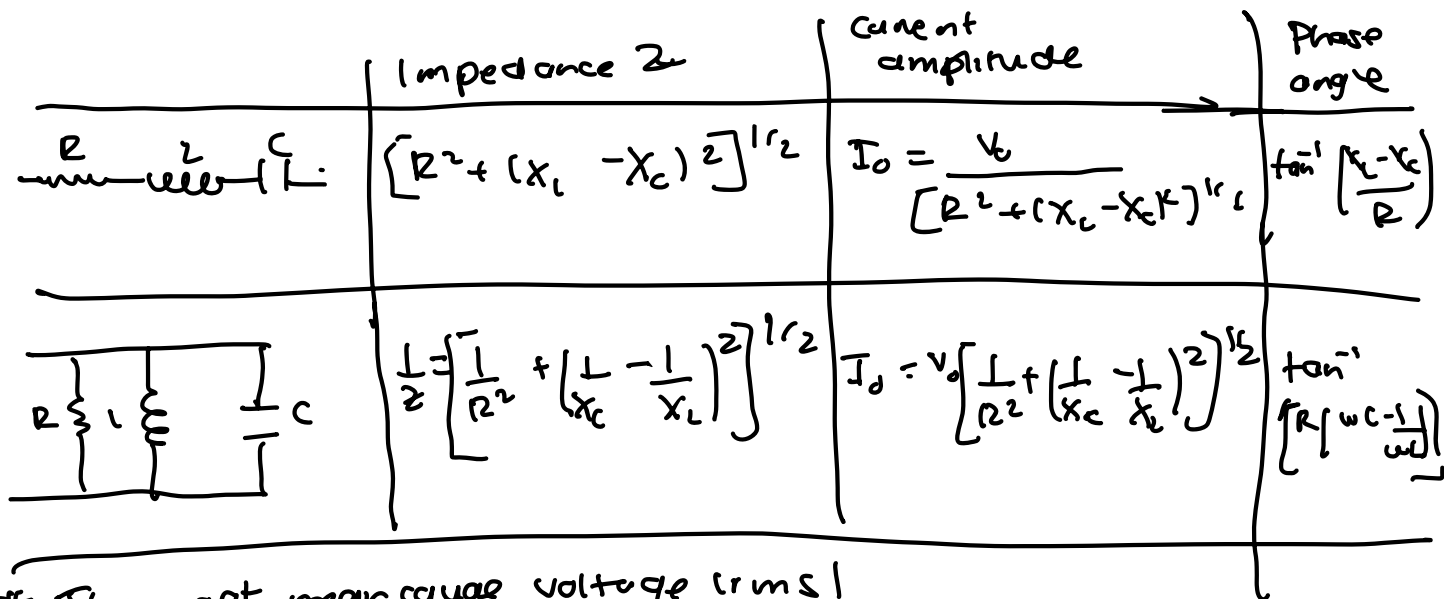 Impedance Z
Current amplitude
Phase angle
R L C
[R² + (X_L - X_C)²]^1/2
I₀ = V₀ / [R² + (X_L - X_C)²]^1/2
tan⁻¹ [(X_L - X_C) / R]
R L C
1/Z = [1/R² + (1/X_C - 1/X_L)²]^1/2
I₀ = V₀ [1/R² + (1/X_C - 1/X_L)²]^1/2
tan⁻¹ [R[ωC - 1/ωL]]
mean square voltage (rms)